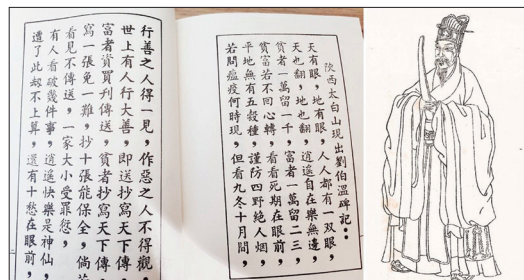 陝西太白山現出劉伯溫碑記：
天有眼，地有眼，人人都有一雙眼，
天也翻，地也翻，逍遙自在樂無邊，
貧者一萬留一千，富者一萬留二三，
貧富若不回心轉，看看死期在眼前，
平地無有五穀種，謹防四野絕人烟，
若問瘟疫何時現，但看九冬十月間，
行善之人得一見，作惡之人不得觀，
世上有人行大善，即送抄寫天下傳
富者資買刊傳送，貧者抄寫天下傳
寫一張免一難，抄十張能保全，倘若
看見不傳送，一家大小受罪愆，
有人看破幾件事，逍遙快樂是神仙，
遭了此劫不上算，還有十愁在眼前